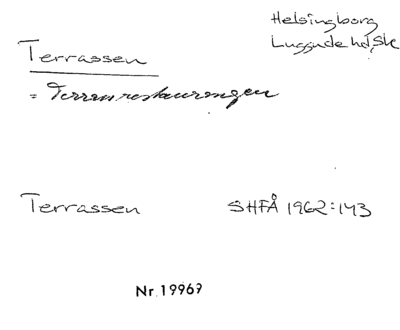 Helsingborg
Luggude hd, Sk
Terrassen
= Terrassrestaurangen
Terrassen SHFÅ 1962:143
Nr. 19967